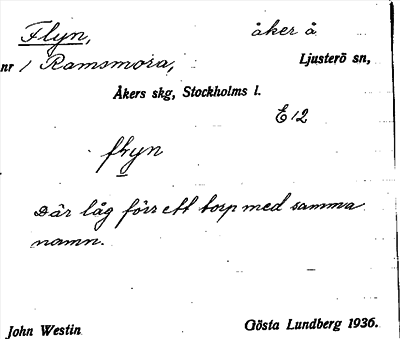 Flyn, åker å
nr 1 Ramsmora, Ljusterö sn,
Åkers skg, Stockholms l.
E 12
flyn
Där låg förr ett torp med samma
namn.
John Westin Gösta Lundberg 1936.